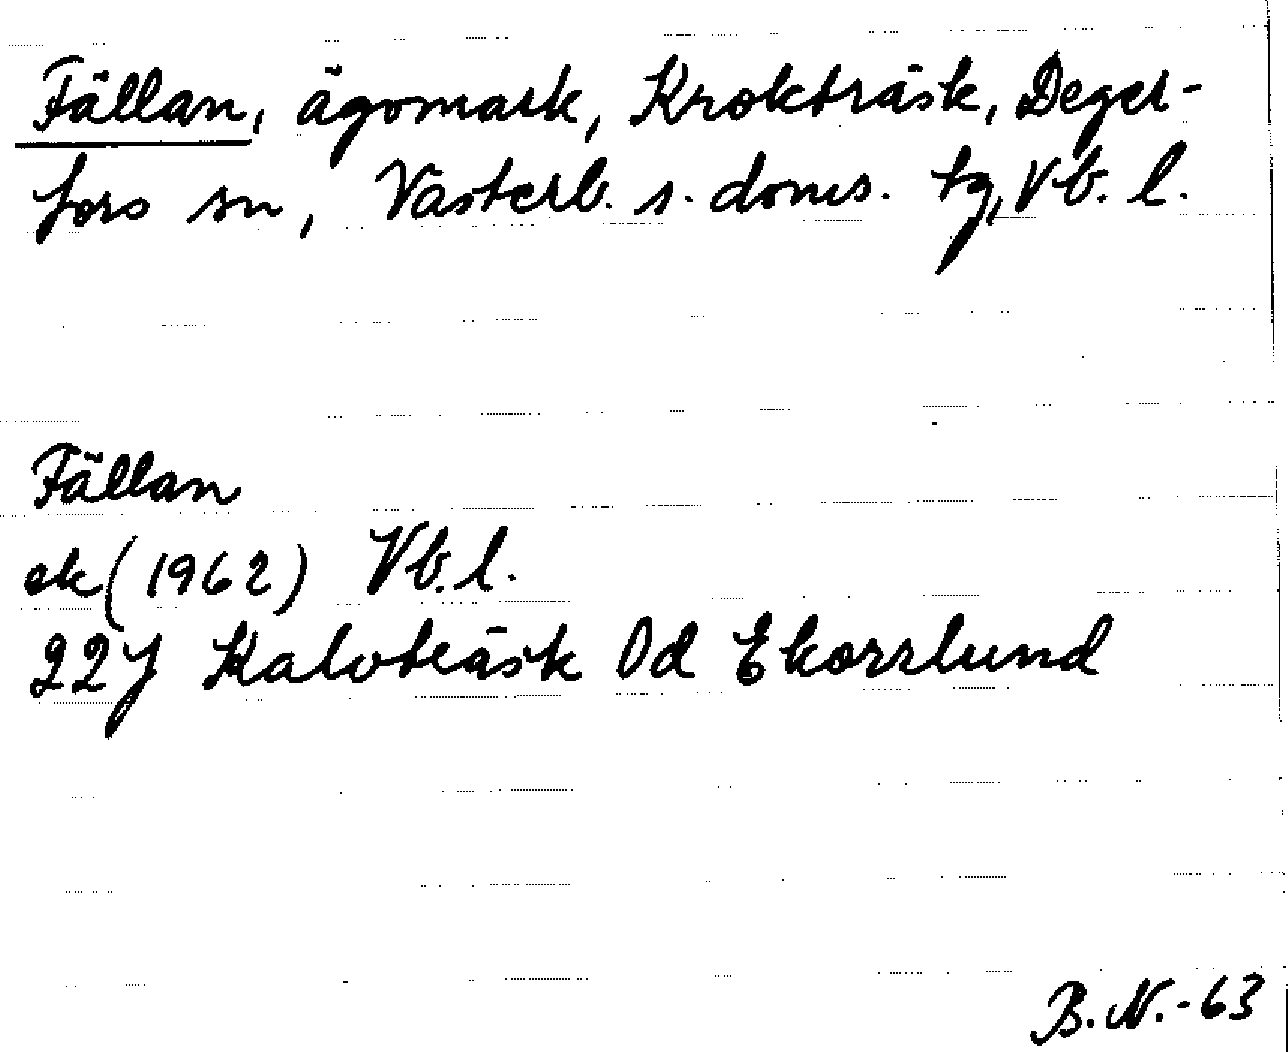 Fällan, ägomark, Krokträsk, Deger-
fors sn, Västerb. s. doms. tg, Vb. l.
Fällan
ek (1962) Vb. l.
22J Kalvträsk 0d Ekorrlund
B. N. - 63